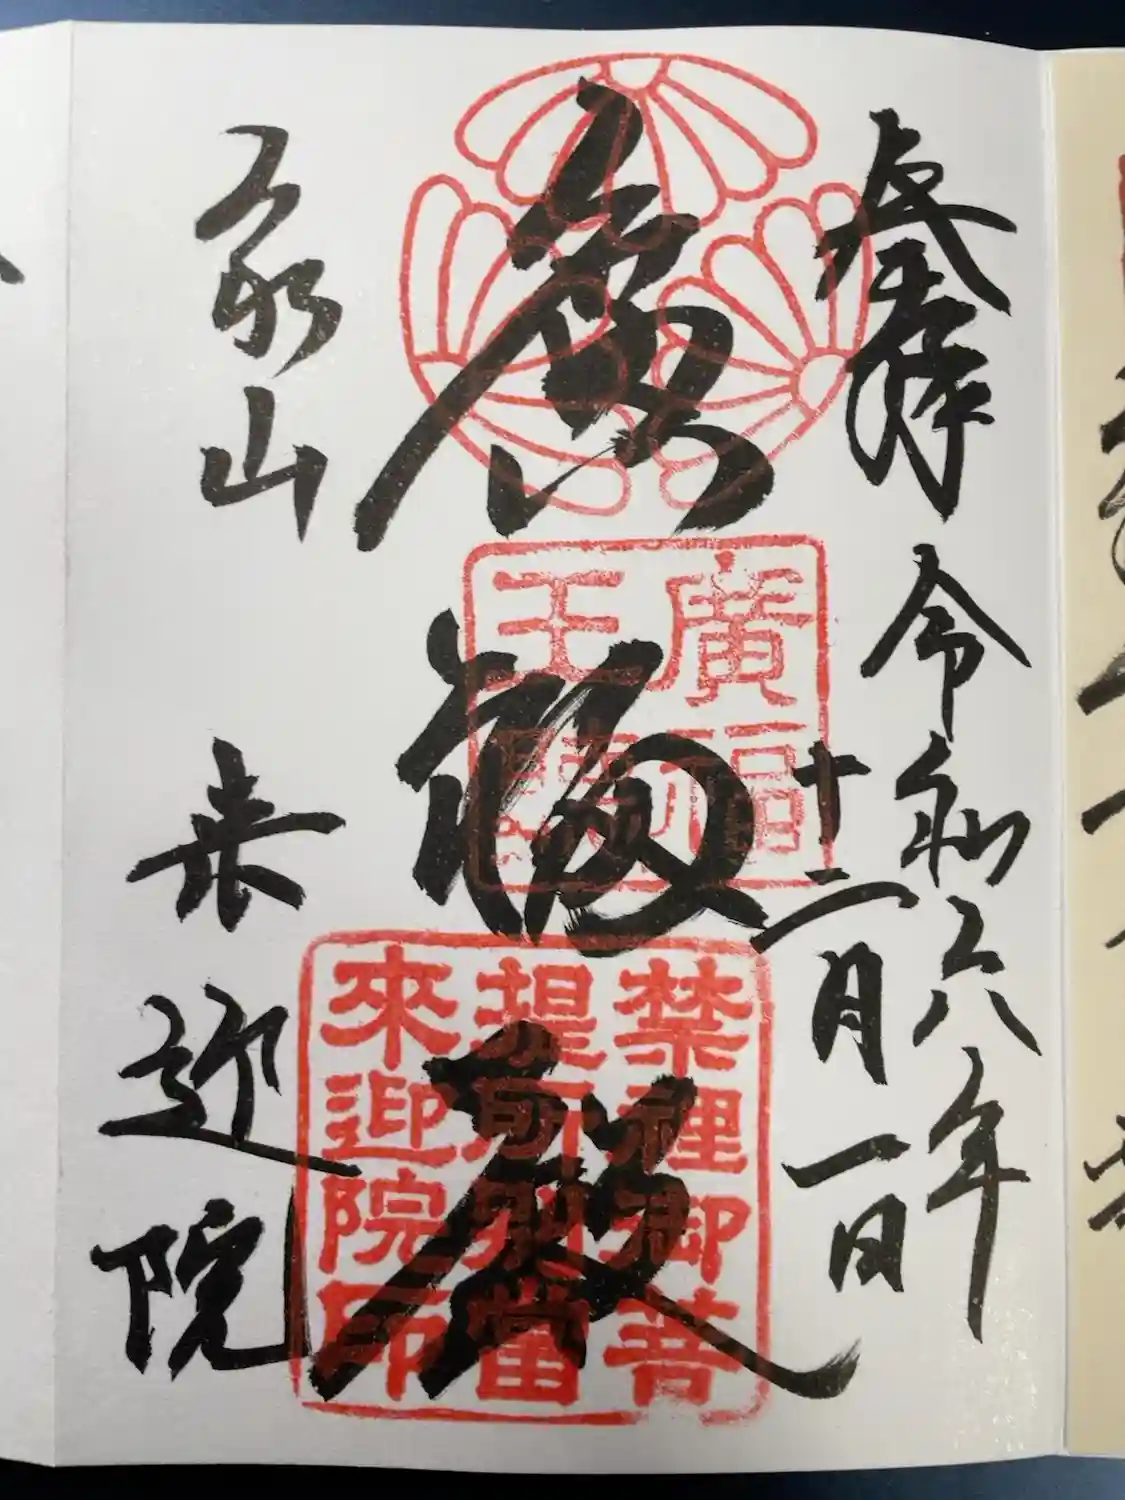 奉拝 令和六年
十二月一日
廣福殿
廣福
王
禁裡御菩
提所別當
來迎院印
泉山 来迎院